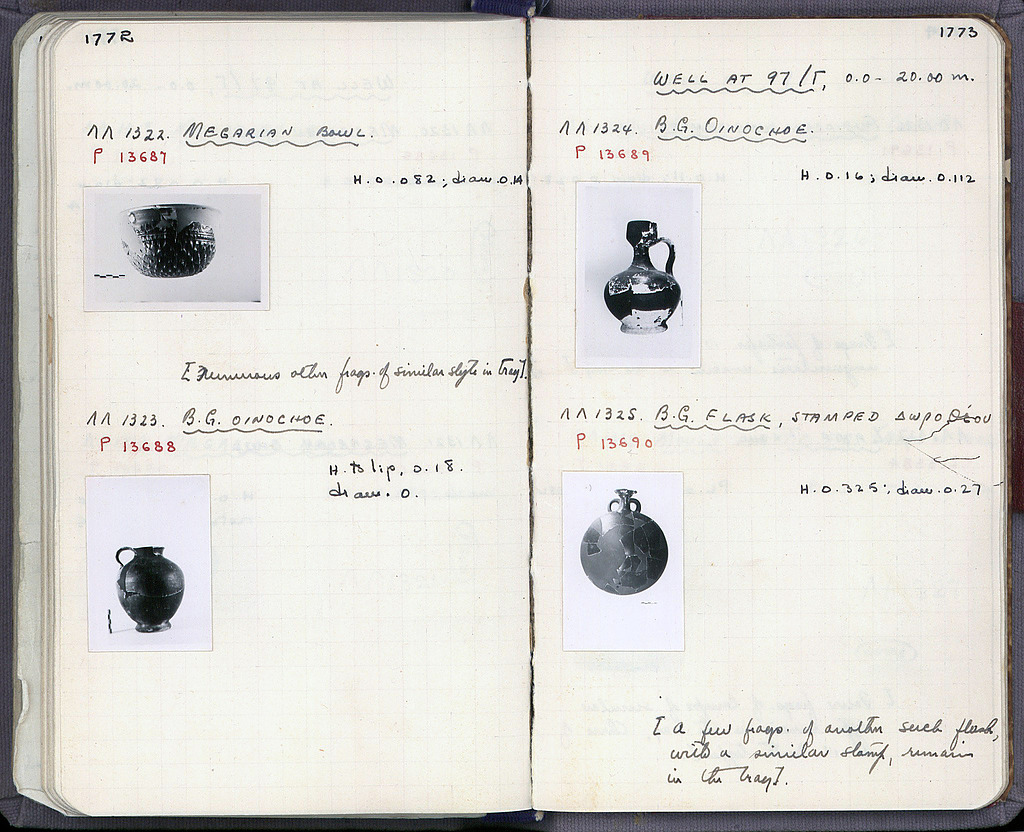 1772
ΛΛ 1322. MEGARIAN BOWL.
P 13687
H. 0.082; diam. 0.14
[Numerous other frags. of similar style in tray].
ΛΛ 1323. B.G. OINOCHOE.
P 13688
H. to lip, 0.18.
diam. 0.
1773
WELL AT 97/Γ, 0.0 - 20.00 m.
ΛΛ 1324. B.G. OINOCHOE.
P 13689
H. 0.16; diam. 0.112
ΛΛ 1325. B.G. FLASK, STAMPED
P 13690
H. 0.325; diam. 0.27
[A few frags. of another such flask,
with a similar stamp, remain
in the tray].